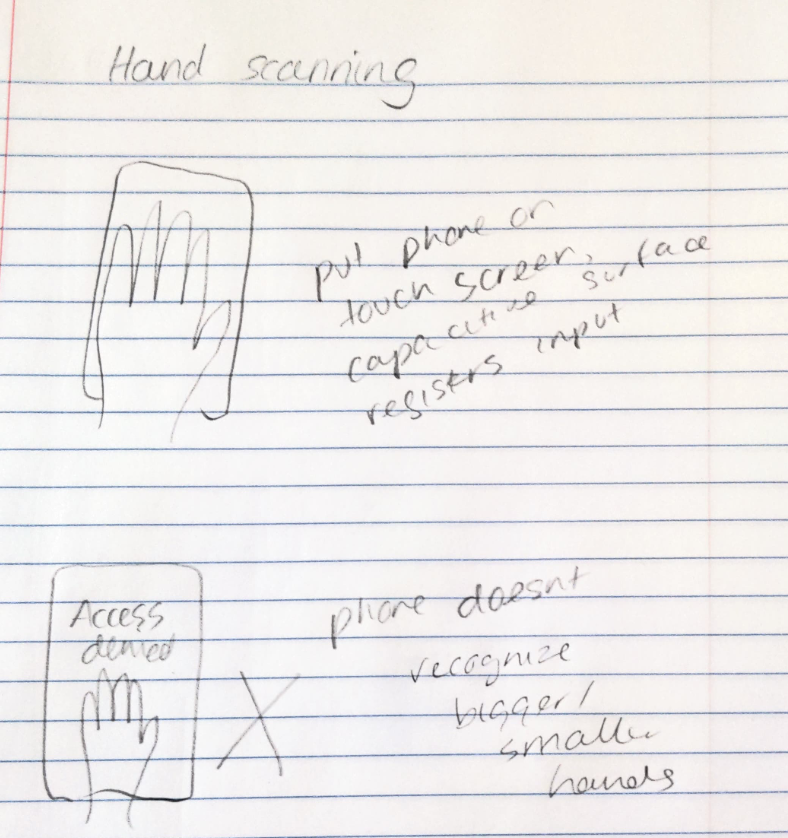 Hand scanning
put phone on
touch screen,
capacitive surface
registers input
Access
denied
phone doesnt
recognize
bigger/
smaller
hands